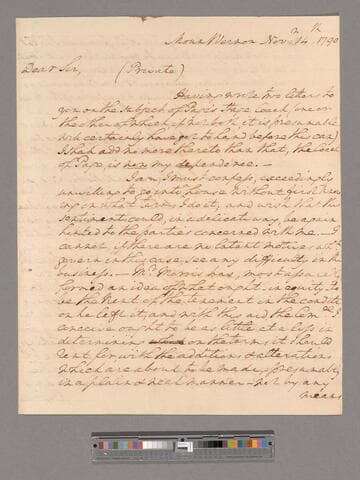 Mount Vernon Novr. 14th. 1790
Dear Sir,
(Private)
Having wrote two letters to
you on the subject of
the then of which
will certainly have got to hand before this can)
I shall add no more thereto than that, the
of is now my dependence.—
I am I must confess, exceedingly
unwilling to go into house without first know-
ing on what terms I do it, and wish that this
sentiment could, in a delicate way, be again
hinted to the parties concerned with me.— I
cannot, if there are no latent motives wch.
govern in this case, see any difficulty in the
business.— Mr. Morris has, most assuredly,
formed an idea of what ought, in equity, to
be the Rent of the tenement in the condition
he left it; and with this aid the Comee. I
conceive ought to be as little at a loss in
determining on the terms it should
rent for with the additions & alterations
which are about to be made, I presume,
in a plain & neat manner— not by any
means